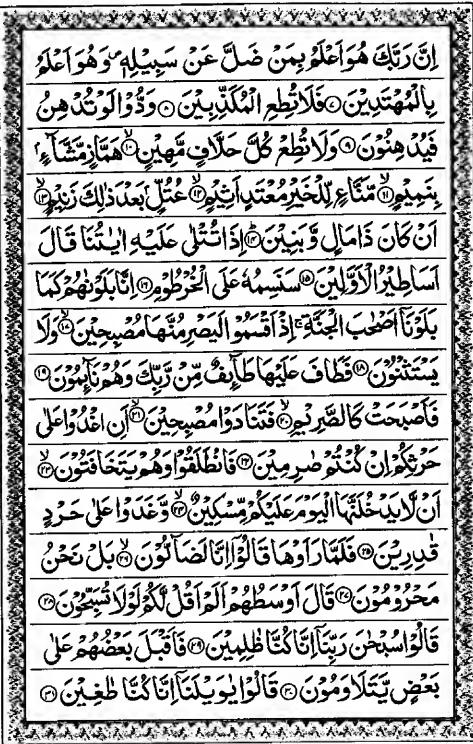 اِنَّ رَبَّكَ هُوَ اَعْلَمُ بِمَنْ ضَلَّ عَنْ سَبِيْلِهٖ ۪ وَهُوَ اَعْلَمُ
بِالْمُهْتَدِيْنَ ۷ فَلَا تُطِعِ الْمُكَذِّبِيْنَ ۸ وَدُّوْا لَوْ تُدْهِنُ
فَيُدْهِنُوْنَ ۹ وَلَا تُطِعْ كُلَّ حَلَّافٍ مَّهِيْنٍ ۱۰ هَمَّازٍ مَّشَّآءٍۭ
بِنَمِيْمٍ ۱۱ مَّنَّاعٍ لِّلْخَيْرِ مُعْتَدٍ اَثِيْمٍ ۱۲ عُتُلٍّۭ بَعْدَ ذٰلِكَ زَنِيْمٍ ۱۳
اَنْ كَانَ ذَا مَالٍ وَّبَنِيْنَ ۱۴ اِذَا تُتْلٰى عَلَيْهِ اٰيٰتُنَا قَالَ
اَسَاطِيْرُ الْاَوَّلِيْنَ ۱۵ سَنَسِمُهٗ عَلَى الْخُرْطُوْمِ ۱۶ اِنَّا بَلَوْنٰهُمْ كَمَا
بَلَوْنَآ اَصْحٰبَ الْجَنَّةِ ۚ اِذْ اَقْسَمُوْا لَيَصْرِمُنَّهَا مُصْبِحِيْنَ ۱۷ وَلَا
يَسْتَثْنُوْنَ ۱۸ فَطَافَ عَلَيْهَا طَآئِفٌ مِّنْ رَّبِّكَ وَهُمْ نَآئِمُوْنَ ۱۹
فَاَصْبَحَتْ كَالصَّرِيْمِ ۲۰ فَتَنَادَوْا مُصْبِحِيْنَ ۲۱ اَنِ اغْدُوْا عَلٰى
حَرْثِكُمْ اِنْ كُنْتُمْ صٰرِمِيْنَ ۲۲ فَانْطَلَقُوْا وَهُمْ يَتَخَافَتُوْنَ ۲۳
اَنْ لَّا يَدْخُلَنَّهَا الْيَوْمَ عَلَيْكُمْ مِّسْكِيْنٌ ۲۴ وَّغَدَوْا عَلٰى حَرْدٍ
قٰدِرِيْنَ ۲۵ فَلَمَّا رَاَوْهَا قَالُوْٓا اِنَّا لَضَآلُّوْنَ ۲۶ بَلْ نَحْنُ
مَحْرُوْمُوْنَ ۲۷ قَالَ اَوْسَطُهُمْ اَلَمْ اَقُلْ لَّكُمْ لَوْلَا تُسَبِّحُوْنَ ۲۸
قَالُوْا سُبْحٰنَ رَبِّنَآ اِنَّا كُنَّا ظٰلِمِيْنَ ۲۹ فَاَقْبَلَ بَعْضُهُمْ عَلٰى
بَعْضٍ يَّتَلَاوَمُوْنَ ۳۰ قَالُوْا يٰوَيْلَنَآ اِنَّا كُنَّا طٰغِيْنَ ۳۱